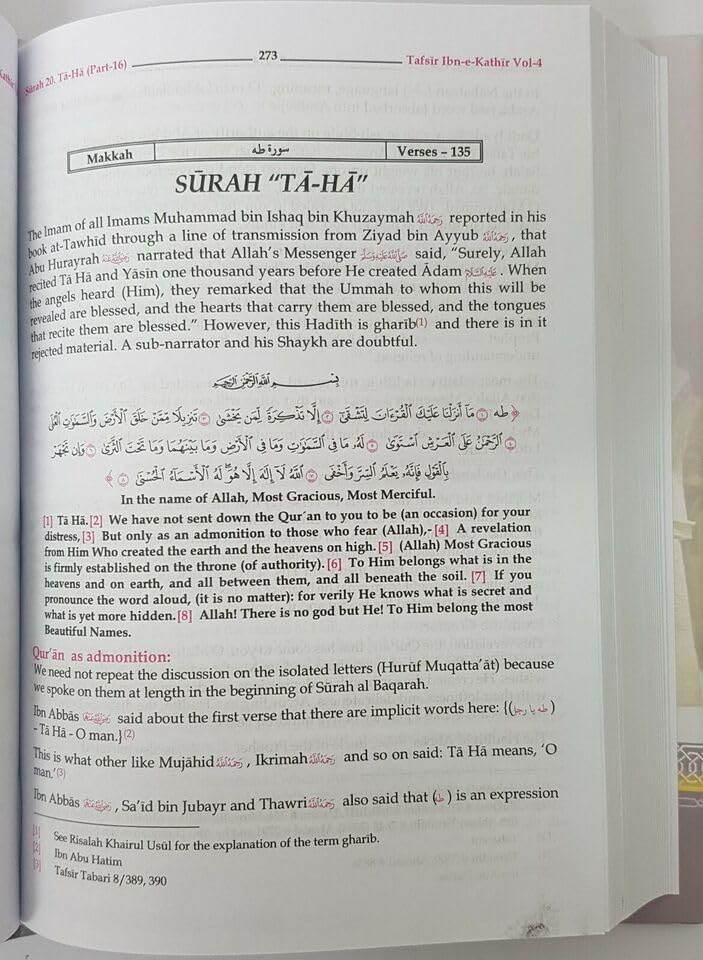 Sūrah 20. Tā-Hā (Part-16) 273 Tafsīr Ibn-e-Kathīr Vol-4
Makkah سورة طه Verses – 135
SŪRAH “TĀ-HĀ”
The Imam of all Imams Muhammad bin Ishaq bin Khuzaymah رَحِمَهُ اللهُ reported in his
book at-Tawhīd through a line of transmission from Ziyad bin Ayyub رَحِمَهُ اللهُ, that
Abu Hurayrah رَضِيَ اللهُ عَنْهُ narrated that Allah’s Messenger صَلَّى اللهُ عَلَيْهِ وَسَلَّمَ said, “Surely, Allah
recited Tā Hā and Yāsīn one thousand years before He created Ādam عَلَيْهِ السَّلَام. When
the angels heard (Him), they remarked that the Ummah to whom this will be
revealed are blessed, and the hearts that carry them are blessed, and the tongues
that recite them are blessed.” However, this Hadīth is gharīb(1) and there is in it
rejected material. A sub-narrator and his Shaykh are doubtful.
بِسْمِ اللهِ الرَّحْمٰنِ الرَّحِيْمِ
﴿ طه ۝١ مَآ أَنزَلْنَا عَلَيْكَ ٱلْقُرْءَانَ لِتَشْقَىٰٓ ۝٢ إِلَّا تَذْكِرَةً لِّمَن يَخْشَىٰ ۝٣ تَنزِيلًا مِّمَّنْ خَلَقَ ٱلْأَرْضَ وَٱلسَّمَٰوَٰتِ ٱلْعُلَى
۝٤ ٱلرَّحْمَٰنُ عَلَى ٱلْعَرْشِ ٱسْتَوَىٰ ۝٥ لَهُۥ مَا فِى ٱلسَّمَٰوَٰتِ وَمَا فِى ٱلْأَرْضِ وَمَا بَيْنَهُمَا وَمَا تَحْتَ ٱلثَّرَىٰ ۝٦ وَإِن تَجْهَرْ
بِٱلْقَوْلِ فَإِنَّهُۥ يَعْلَمُ ٱلسِّرَّ وَأَخْفَى ۝٧ ٱللَّهُ لَآ إِلَٰهَ إِلَّا هُوَ لَهُ ٱلْأَسْمَآءُ ٱلْحُسْنَىٰ ۝٨ ﴾
In the name of Allah, Most Gracious, Most Merciful.
[1] Tā Hā.[2] We have not sent down the Qur´an to you to be (an occasion) for your
distress,[3] But only as an admonition to those who fear (Allah),- [4] A revelation
from Him Who created the earth and the heavens on high.[5] (Allah) Most Gracious
is firmly established on the throne (of authority). [6] To Him belongs what is in the
heavens and on earth, and all between them, and all beneath the soil. [7] If you
pronounce the word aloud, (it is no matter): for verily He knows what is secret and
what is yet more hidden.[8] Allah! There is no god but He! To Him belong the most
Beautiful Names.
Qur’ān as admonition:
We need not repeat the discussion on the isolated letters (Hurūf Muqatta’āt) because
we spoke on them at length in the beginning of Sūrah al Baqarah.
Ibn Abbās رَضِيَ اللهُ عَنْهُ said about the first verse that there are implicit words here: {(طه يا رجل)
- Tā Hā - O man.}(2)
This is what other like Mujāhid رَحِمَهُ اللهُ, Ikrimah رَحِمَهُ اللهُ and so on said: Tā Hā means, ‘O
man.’(3)
Ibn Abbās رَضِيَ اللهُ عَنْهُ, Sa’īd bin Jubayr and Thawri رَحِمَهُ اللهُ also said that (طه) is an expression
[1] See Risalah Khairul Usūl for the explanation of the term gharīb.
[2] Ibn Abu Hatim
[3] Tafsīr Tabari 8/389, 390